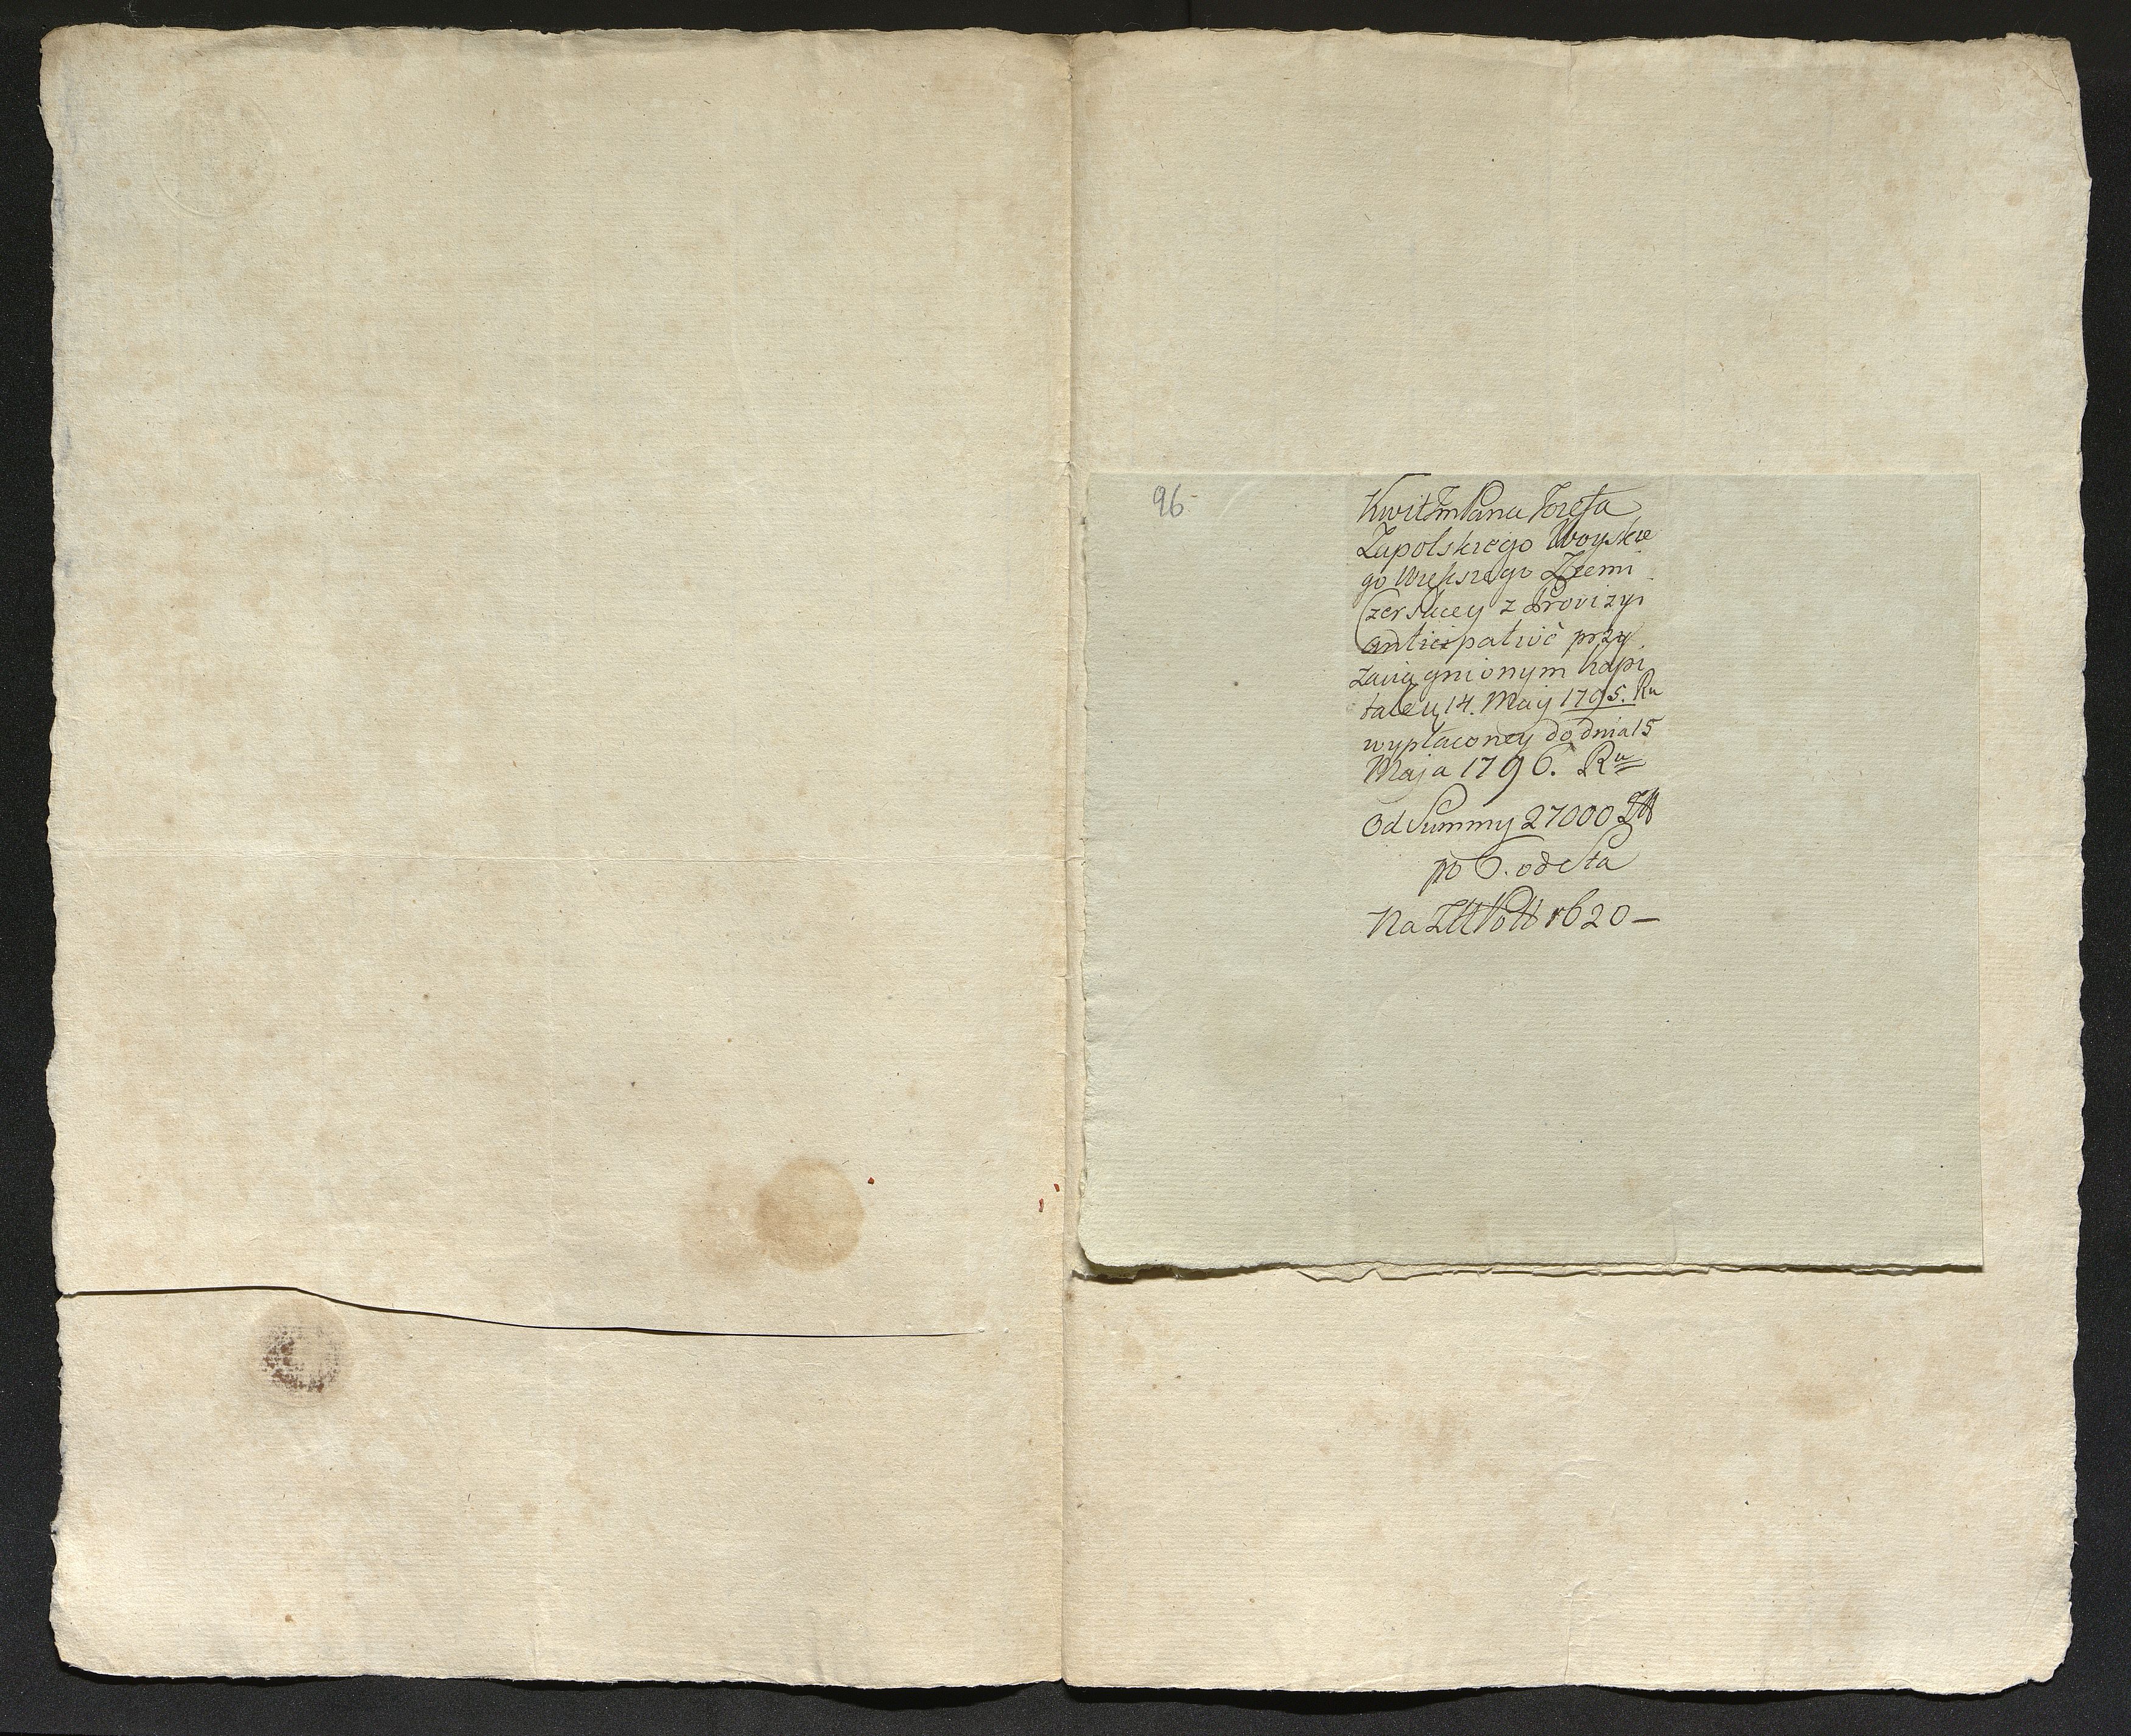 96
Kwit Jm Pana Jozefa
Zapolskiego Woyskie
go Większego Ziemi
Czerskiey z Prowizyi
anticipativè przy
zaciągnionym kapi
tale u 14. Maij 1795. Ru
wypłaconey do dnia 15
Maja 1796. Ru
Od Summy 27000 Złł
po 6. od Sta
Na Złł Poll 1620 —